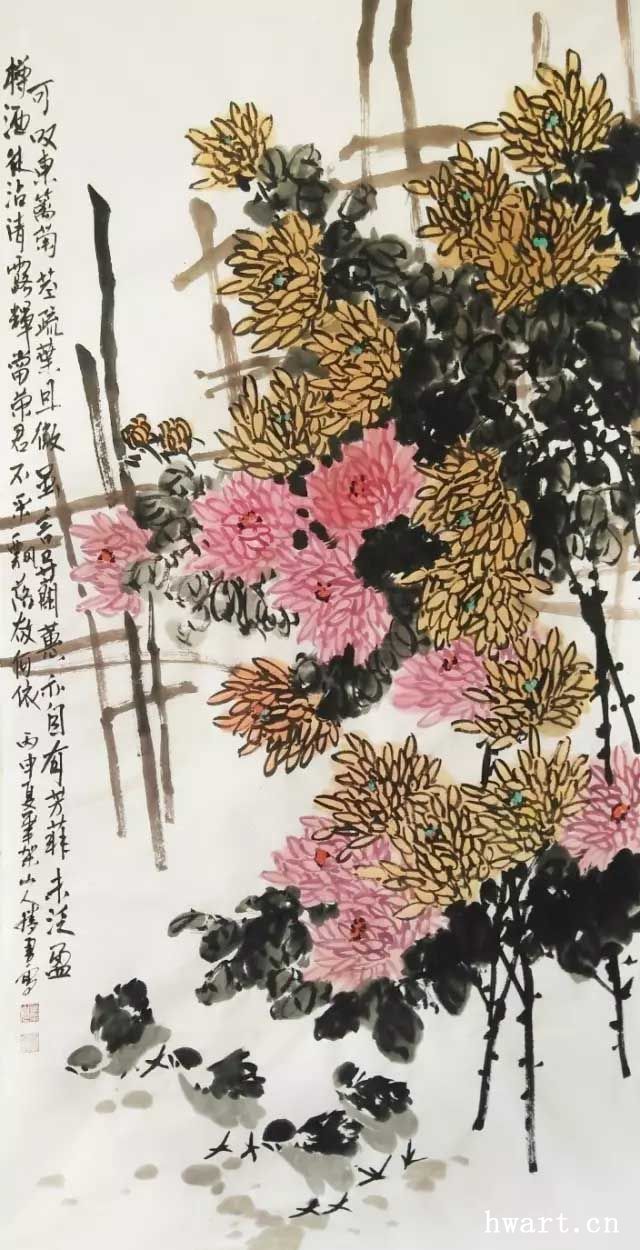 可叹東篱菊茎疏葉且微虽言异蘭蕙亦自有芳菲未泛盈
樽酒徒沾清露輝當荣君不采飘落欲何依 丙申夏 山人
hwart.cn